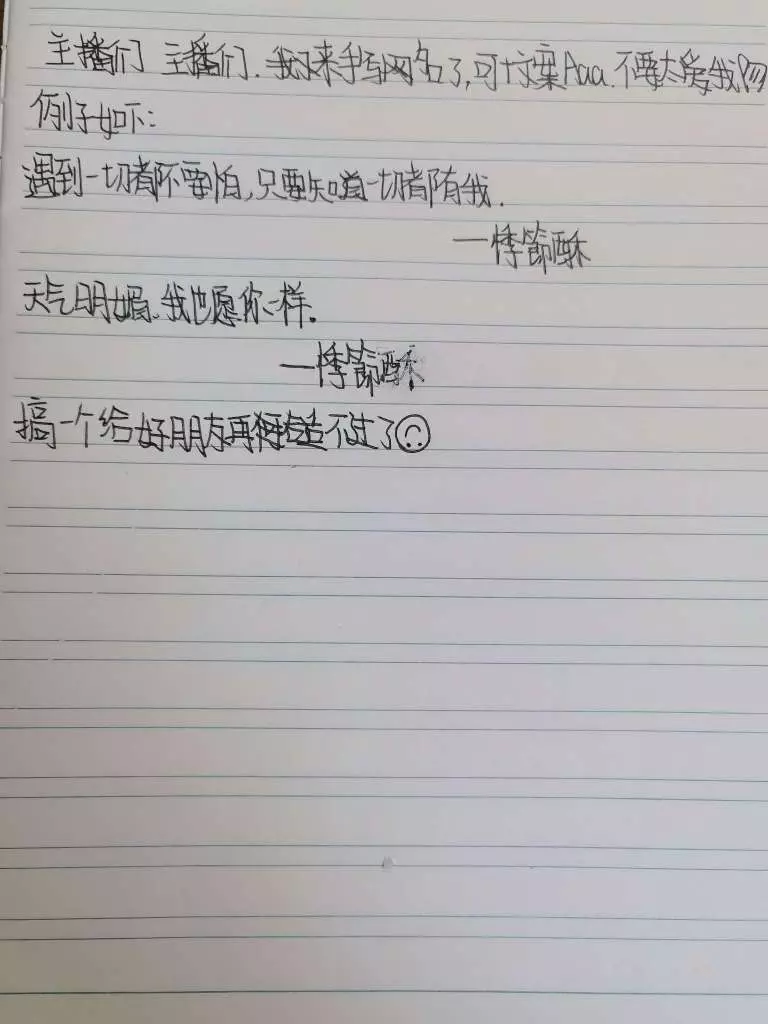 主播们 主播们.我又来手写网名了,可十文案Aaa.不要太爱我哟
例子如下:
遇到一切都不要怕,只要知道一切都有我.
一悸節酥
天气明媚.我也愿你一样.
一悸節酥
搞一个给好朋友再合适不过了